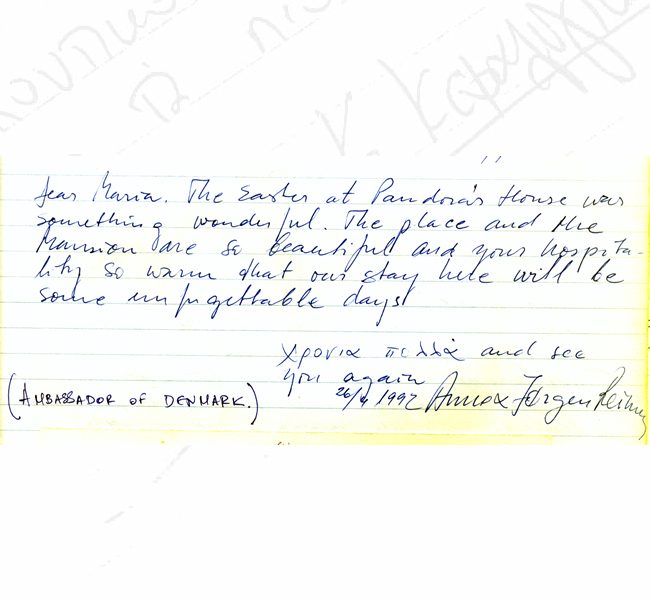 Dear Maria. The Easter at Pandora's House was
something wonderful. The place and the
Mansion are so beautiful and your hospita-
lity so warm that our stay here will be
some unforgettable days!
χρονια πολλά and see
you again
26/4 1992 Anna & Jørgen
(AMBASSADOR OF DENMARK.)